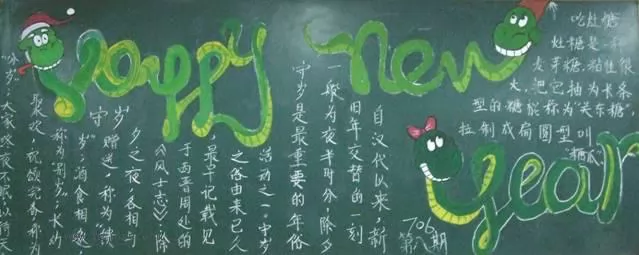 Happy New Year
吃灶糖
灶糖是一种
麦芽糖,粘性很
大,把它抽为长条
型的糖棍称为"关东糖"
拉制成扁圆型叫
"糖瓜"
守岁
自汉代以来,新
旧年交替的一刻
一般为夜半时分,除夕
守岁是最重要的年俗
活动之一。守岁
之俗由来已久
最早记载见
于西晋周处的
《风土志》:除
夕之夜,各相与
赠送,称为"馈
岁";酒食相邀,
称为"别岁";长幼
聚欢,祝颂完备称为
"分岁";大家终夜不眠,以待天
706
第八期